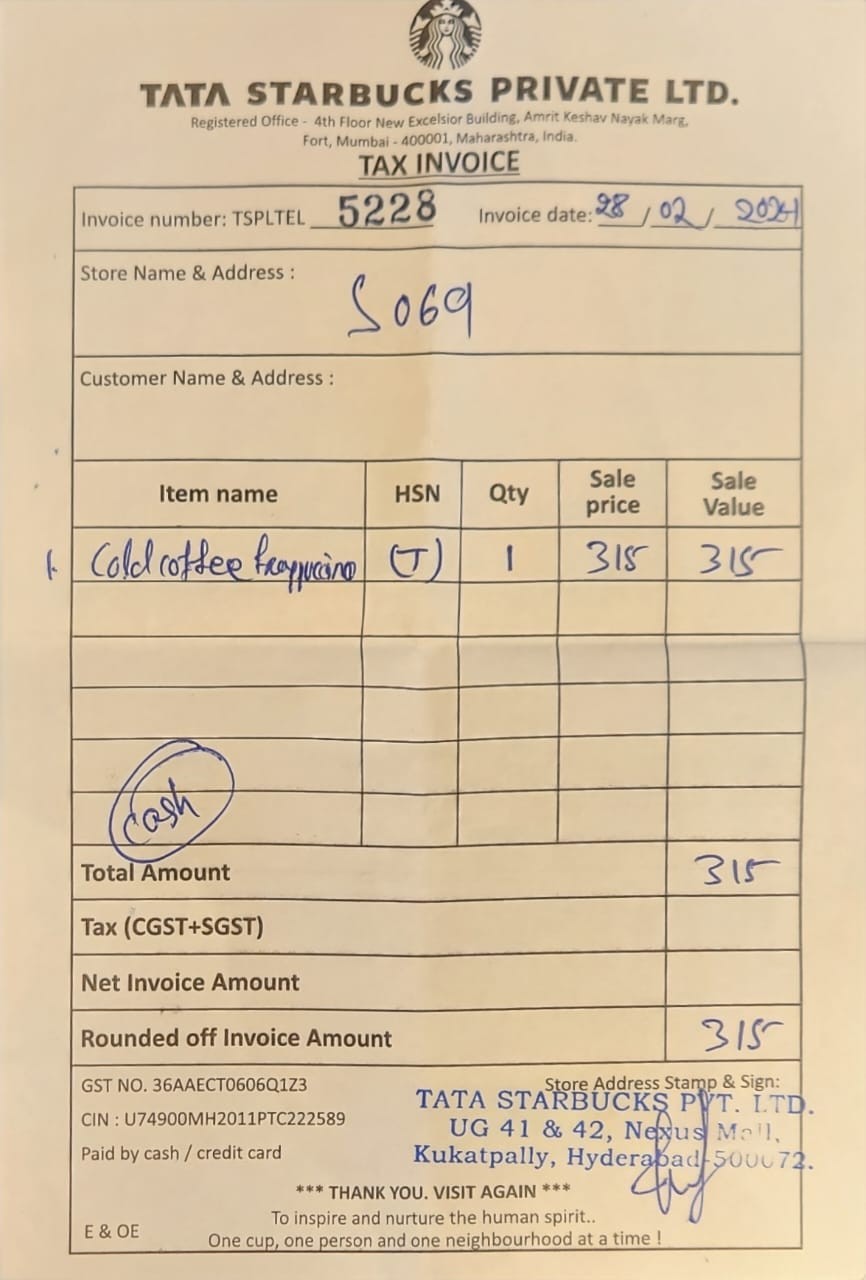 TATA STARBUCKS PRIVATE LTD.
Registered Office - 4th Floor New Excelsior Building, Amrit Keshav Nayak Marg,
Fort, Mumbai - 400001, Maharashtra, India.
TAX INVOICE
Invoice number: TSPLTEL 5228 Invoice date: 28 / 02 / 2024
Store Name & Address :
S069
Customer Name & Address :
Item name HSN Qty Sale price Sale Value
1. Cold coffee frappuccino (T) 1 315 315
cash
Total Amount 315
Tax (CGST+SGST)
Net Invoice Amount
Rounded off Invoice Amount 315
GST NO. 36AAECT0606Q1Z3
CIN : U74900MH2011PTC222589
Paid by cash / credit card
Store Address Stamp & Sign:
TATA STARBUCKS PVT. LTD.
UG 41 & 42, Nexus Mall,
Kukatpally, Hyderabad-500072.
*** THANK YOU. VISIT AGAIN ***
To inspire and nurture the human spirit..
E & OE One cup, one person and one neighbourhood at a time !